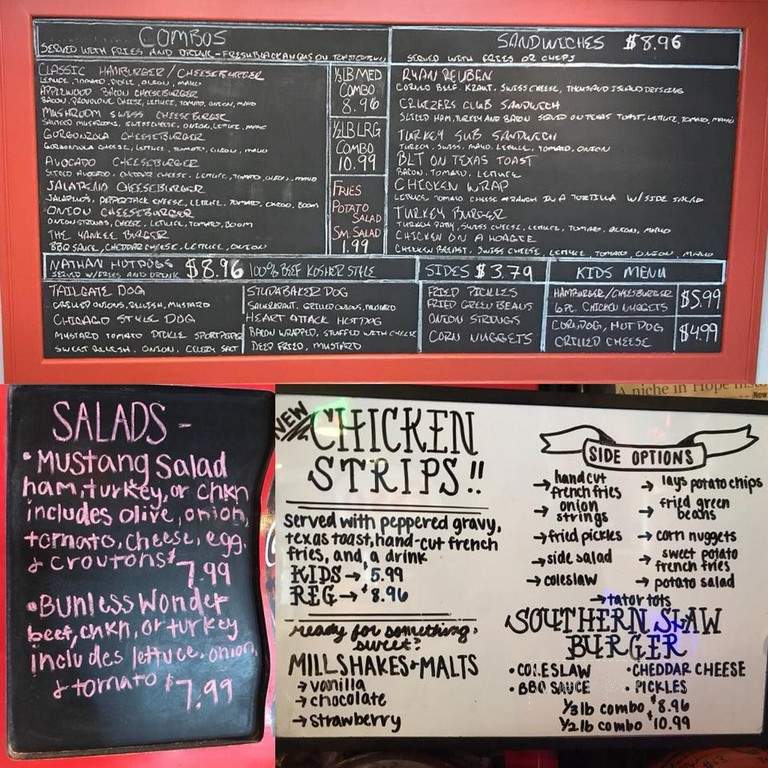 COMBOS
SERVED WITH FRIES AND DRINK - FRESH BLACK ANGUS ON
CLASSIC HAMBURGER / CHEESEBURGER
LETTUCE, TOMATO, PICKLE, ONION, MAYO
APPLEWOOD BACON CHEESEBURGER
BACON, PROVOLONE CHEESE, LETTUCE, TOMATO, ONION, MAYO
MUSHROOM SWISS CHEESEBURGER
SAUTEED MUSHROOMS, SWISS CHEESE, ONION, LETTUCE, MAYO
GORGONZOLA CHEESEBURGER
GORGONZOLA CHEESE, LETTUCE, TOMATO, ONION, MAYO
AVOCADO CHEESEBURGER
SLICED AVOCADO, CHEDDAR CHEESE, LETTUCE, TOMATO, ONION, MAYO
JALAPENO CHEESEBURGER
JALAPENOS, PEPPERJACK CHEESE, LETTUCE, TOMATO, ONION, BOOM
ONION CHEESEBURGER
ONION STRINGS, CHEESE, LETTUCE, TOMATO, BOOM
THE YANKEE BURGER
BBQ SAUCE, CHEDDAR CHEESE, LETTUCE, ONION
LB MED
COMBO
8.96
1/2 LB LRG
COMBO
10.99
FRIES
POTATO
SALAD
SM. SALAD
1.99
SANDWICHES $8.96
SERVED WITH FRIES OR CHIPS
RYAN REUBEN
CORNED BEEF, KRAUT, SWISS CHEESE, THOUSAND ISLAND DRESSING
CRUIZERS CLUB SANDWICH
SLICED HAM, TURKEY AND BACON SERVED ON TEXAS TOAST, LETTUCE, TOMATO, MAYO
TURKEY SUB SANDWICH
TURKEY, SWISS, MAYO, LETTUCE, TOMATO, ONION
BLT ON TEXAS TOAST
BACON, TOMATO, LETTUCE
CHICKEN WRAP
LETTUCE TOMATO CHEESE & RANCH IN A TORTILLA W/ SIDE SALAD
TURKEY BURGER
TURKEY PATTY, SWISS CHEESE, LETTUCE, TOMATO, ONIONS, MAYO
CHICKEN ON A HOAGIE
CHICKEN BREAST, SWISS CHEESE, LETTUCE, TOMATO, ONION, MAYO
NATHAN HOTDOGS $8.96 100% BEEF KOSHER STYLE
SERVED W/FRIES AND DRINK
TAILGATE DOG
GRILLED ONIONS, RELISH, MUSTARD
CHICAGO STYLE DOG
MUSTARD TOMATO PICKLE SPORT PEPPER
SWEET RELISH, ONION, CELERY SALT
STUDABAKER DOG
SAUERKRAUT, GRILLED ONIONS, MUSTARD
HEART ATTACK HOTDOG
BACON WRAPPED, STUFFED WITH CHEESE
DEEP FRIED, MUSTARD
SIDES $3.79
FRIED PICKLES
FRIED GREEN BEANS
ONION STRINGS
CORN NUGGETS
KIDS MENU
HAMBURGER/CHEESEBURGER
6 PC. CHICKEN NUGGETS
$5.99
CORNDOG, HOT DOG
GRILLED CHEESE
$4.99
SALADS -
• Mustang Salad
ham, turkey, or chkn
includes olive, onion,
tomato, cheese, egg,
& croutons $7.99
• Bunless Wonder
beef, chkn, or turkey
includes lettuce, onion,
& tomato $7.99
A niche in Hope
Now
NEW
CHICKEN
STRIPS!!
served with peppered gravy,
texas toast, hand-cut french
fries, and a drink
KIDS → $5.99
REG → $8.96
ready for something
sweet?
MILLSHAKES & MALTS
→ vanilla
→ chocolate
→ strawberry
SIDE OPTIONS
→ hand cut
french fries
→ onion
strings
→ fried pickles
→ side salad
→ coleslaw
→ lays potato chips
→ fried green
beans
→ corn nuggets
→ sweet potato
french fries
→ potato salad
→ tator tots
SOUTHERN SLAW
BURGER
• COLESLAW • CHEDDAR CHEESE
• BBQ SAUCE • PICKLES
1/3 lb combo $8.96
1/2 lb combo $10.99